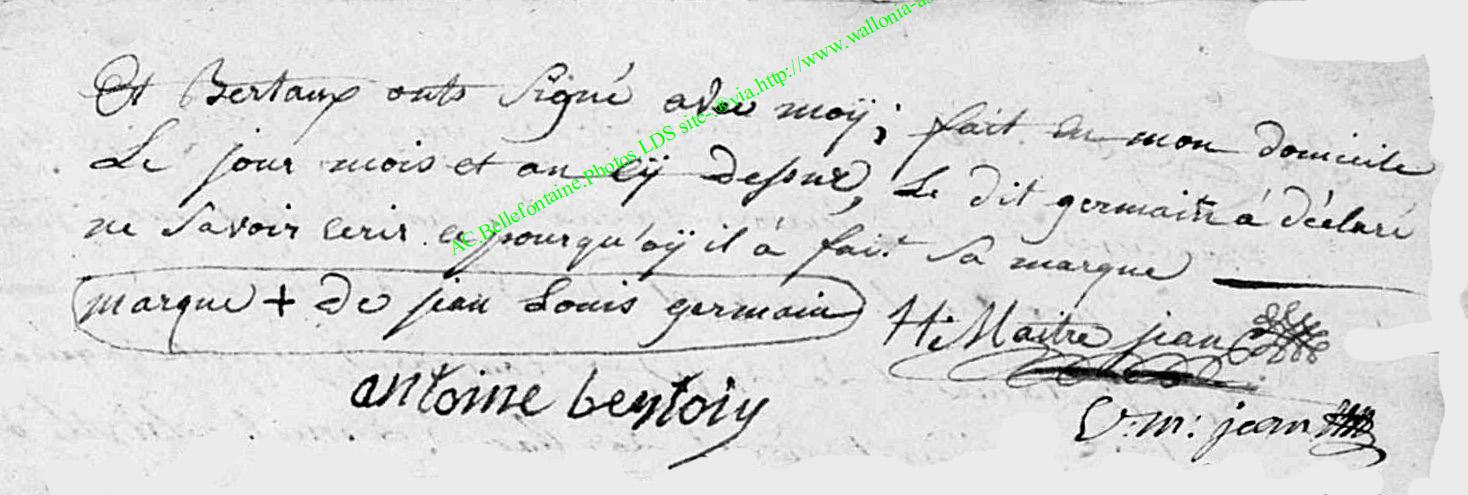 Et Bertaux onts signé avec moÿ; fait en mon domicile
Le jour mois et an cÿ dessus, Le dit germain à déclaré
ne savoir ecrir ce pourqu'oÿ il à fait sa marque
marque + de jean Louis germain
H: Maitre jean
antoine
V: m: jean
AC.Bellefontaine.Photos.LDS site-.®via.http://www.wallonia-as